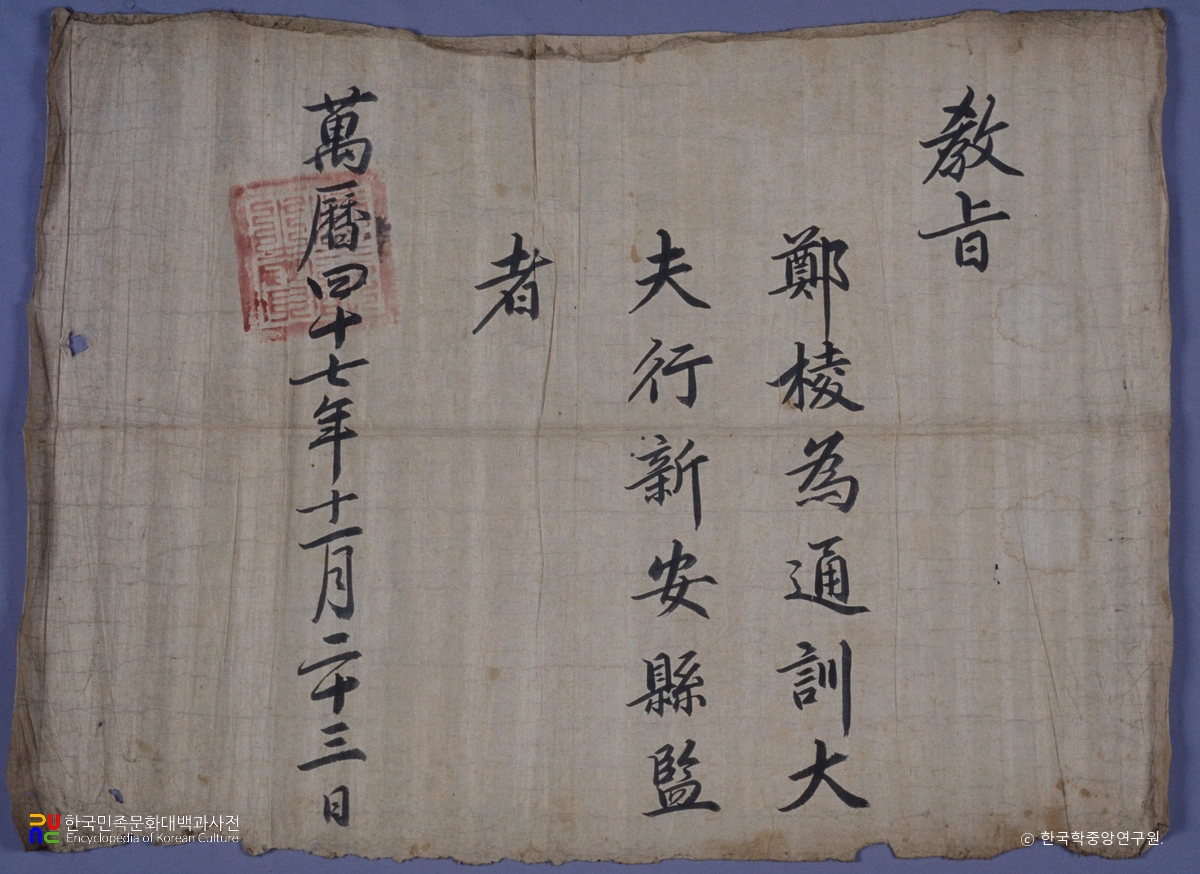 教旨
鄭稜為通訓大
夫行新安縣監
者
萬曆四十七年十一月二十三日
한국민족문화대백과사전
Encyclopedia of Korean Culture
ⓒ 한국학중앙연구원.